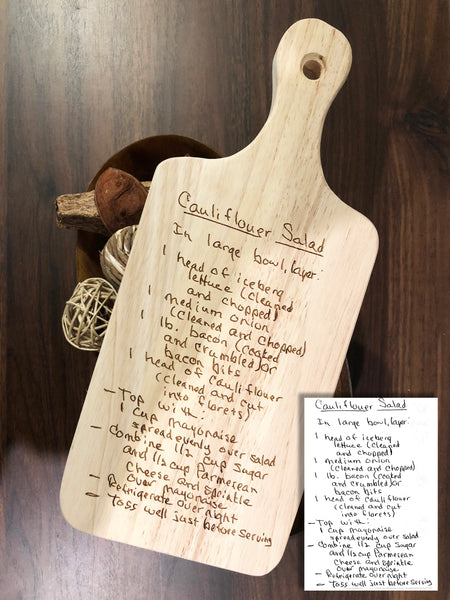 Cauliflower Salad
In large bowl, layer:
1 head of iceberg
lettuce (cleaned
and chopped)
1 medium onion
(cleaned and chopped)
1 lb. bacon (cooked
and crumbled) or
bacon bits
1 head of cauliflower
(cleaned and cut
into florets)
- Top with:
1 cup mayonaise
spread evenly over salad
- Combine 1/2 cup sugar
and 1/2 cup Parmesean
Cheese and sprinkle
over mayonaise
- Refrigerate overnight
- Toss well just before serving
Cauliflower Salad
In large bowl, layer:
1 head of iceberg
lettuce (cleaned
and chopped)
1 medium onion
(cleaned and chopped)
1 lb. bacon (cooked
and crumbled) or
bacon bits
1 head of cauliflower
(cleaned and cut
into florets)
- Top with:
1 cup mayonaise
spread evenly over salad
- Combine 1/2 cup sugar
and 1/2 cup Parmesean
Cheese and sprinkle
over mayonaise
- Refrigerate overnight
- Toss well just before serving